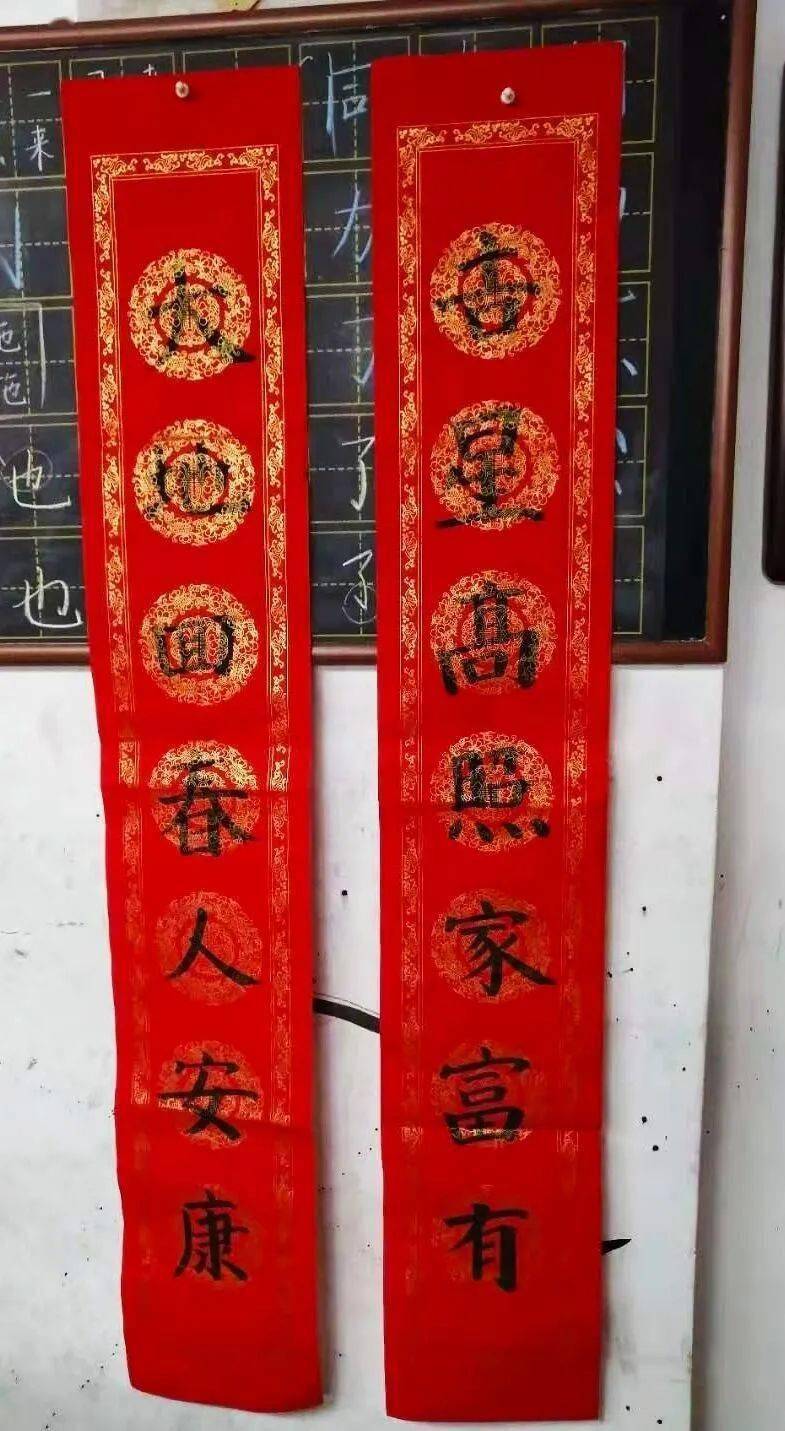 吉星高照家富有
大地回春人安康
一来
也
也
力
了
子